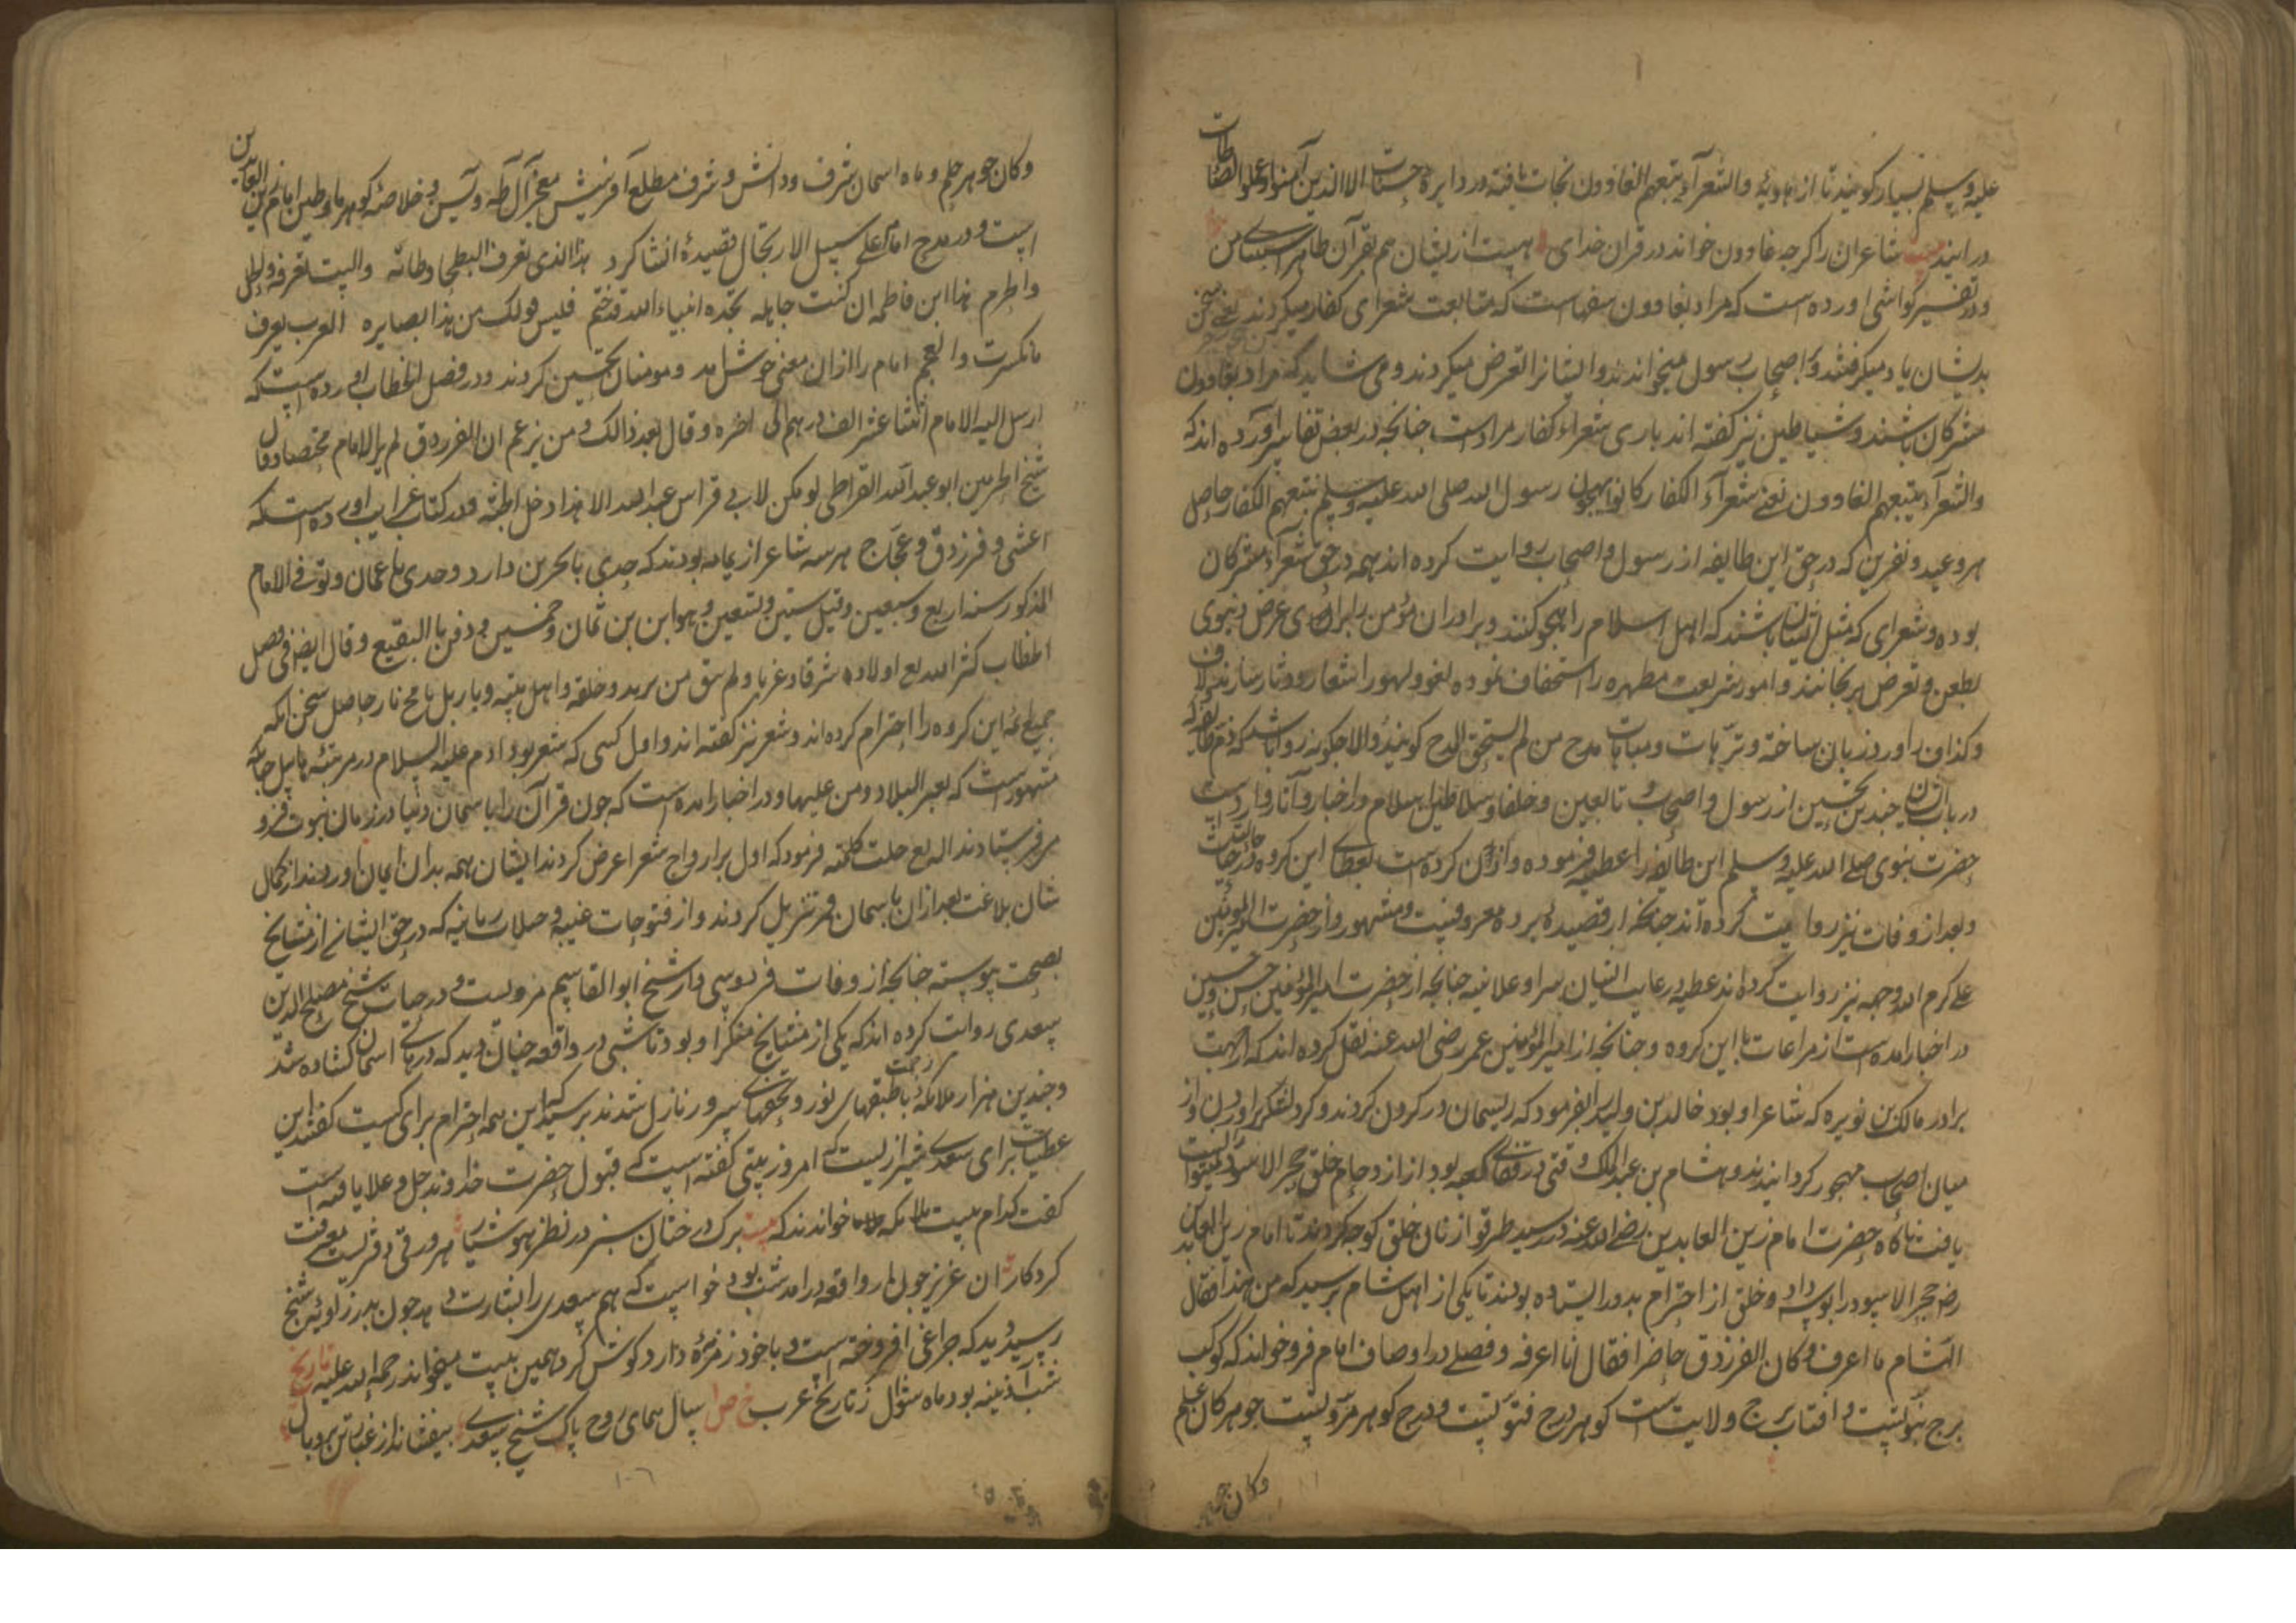 علیه وسلم بسیار کویند تا از هاویهٔ والشعرآء یتبعهم الغاوون نجات یافته در دایرهٔ جنات الا الذین آمنوا وعملوا الصالحات
در ایند بیت شاعران را کرجه غاوون خواند در قران خدای هست ازیشان هم بقرآن ظاهر استثنای من
ودر تفسیر کواشی اورده است که مراد بغاوون سفهاست که متابعت شعرای کفار میکردند یعنی سخن
بدیشان یاد میکرفتند و اصحاب رسول میخواندند وایشانرا تعرض میکردند و می شاید که مراد بغاوون
مشرکان باشند وشیاطین نیز کفته اند باری شعراء کفار مراد است جنانجه در بعض تفاسیر آورده اند که
والشعرآء یتبعهم الغاوون یعنی شعرآء الکفار کانوا یهجون رسول الله صلی الله علیه وسلم یتبعهم الکفار حاصل
هر وعید ونفرین که در حق این طایفه از رسول و اصحاب روایت کرده اند همه در حق شعرآء مشرکان
بوده و شعرای که مثل ایشان باشند که اهل اسلام را هجو کنند وبرادران مؤمن را برای غرض دنیوی
بطعن وتعرض برنجانند و امور شریعت مطهره را استخفاف نموده لغو ولهو را شعار ودثار سازند ولاف
وکذاف را ورد زبان ساخته وترهات ومباهات مدح من لم یستحق المدح کویند والا جکونه روا باشد که ذم طایفه که
در باب ایشان جندین تحسین از رسول و اصحاب و تابعین و خلفا وسلاطین اسلام در اخبار و آثار وارد است
حضرت نبوی صلی الله علیه وسلم این طایفه را عطیه فرموده و از ان کرده است بعطای این کروه در حال حیات
وبعد از وفات نیز روایت کرده اند جنانکه از قصیدهٔ برده معروفست ومشهور و از حضرت امیر المؤمنین
علی کرم الله وجهه نیز روایت کرده اند عطیه ورعایت ایشان سرا وعلانیه جنانجه از حضرت امیر المؤمنین حسن و حسین
در اخبار امده است از مراعات با این کروه و جنانجه از امیر المؤمنین عمر رضی الله عنه نقل کرده اند که از جهت
برادر مالک بن نویره که شاعر او بود خالد بن ولید را بفرمود که ریسمان در کردن کردند و کرد لشکر براوردن و از
میان اصحاب مهجور کردانیدند و هشام بن عبد الملک وقتی در قفای کعبه بود از ازدحام خلق حجر الاسود نتوانست
یافت ناکاه حضرت امام زین العابدین رضی الله عنه در رسید طرقوا از زنان خلق کوجه کردند تا امام زین العابدین
رض حجر الاسود را بوسه داد و خلق از احترام بدور ایستاده بودند تا یکی از اهل شام پرسید که من هذا فقال
الشام ما اعرف وکان الفرزدق حاضرا فقال انا اعرفه وفصلی در اوصاف امام فرو خواند که کوکب
برج نبوتست و افتاب برج ولایت است کوهر درج فتوتست و درج کوهر مروتست جوهر کان علم
وکان جوهر
وکان جوهر حلم و ماه اسمان شرف ودانش وشرف مطلع آفرینش معجز آل طه ویس و خلاصهٔ کوهر ماء وطین امام زین العابدین
است و در مدح امام علی سبیل الارتجال قصیدهٔ انشا کرد هذا الذی تعرف البطحا وطأته والبیت یعرفه والحل
والحرم هذا ابن فاطمه ان کنت جاهله بجده انبیاء الله قد ختم فلیس قولک من هذا بضایره العرب یعرف
ما نکرت والعجم امام را ازان معنی خوش امد ومومنان تحسین کردند ودر فصل الخطاب اورده است که
ارسل الیه الامام اثنا عشر الف درهم الی اخره وقال بعد ذالک ومن یزعم ان الفرزدق لم یر الامام مختصا وقال
شیخ الحرمین ابو عبد الله القراطی لو یکن لابی فراس عند الله الا هذا دخل الجنة ودر کتاب غرایب اورده است که
اعشی و فرزدق وعجاج هر سه شاعر از یمامه بودند که حدی با بحرین دارد و حدی با عمان وتوفی الامام
المذکور سنه اربع وسبعین وقیل ستین وتسعین وهو ابن ثمان وخمسین ودفن بالبقیع وقال ایضا فی فصل
الخطاب کثر الله تع اولاده شرقا وغربا ولم یبق من یرید وخلقه واهل بیته
جمیع ائمه این کروه را احترام کرده اند وشعر نیز کفته اند و اول کسی که شعر بود ادم علیه السلام در مرثیه هابیل جنانکه
مشهور است که تغیر البلاد ومن علیها و در اخبار امده است که جون قرآن را با سمان دنیا در زمان نبوت فرو
می فرستادند الله تع جلت کلمته فرمود که اول بر ارواح شعرا عرض کردند ایشان همه بدان ایمان اوردند از کمال
شان بلاغت بعد ازان با سمان فرو تنزیل کردند و از فتوحات غیبیه وصلات ربانیه که در حق ایشان از مشایخ
بصحت پیوسته جنانجه از وفات فردوسی دار شیخ ابو القاسم مرویست و در حیات شیخ مصلح الدین
سعدی روایت کرده اند که یکی از مشایخ منکر او بود تا شبی در واقعه جنان دید که درهای اسمان کشاده شد
و جندین هزار ملائکه با طبقهای نور رحمت وتحفهای سرور نازل شدند پرسید که این همه احترام برای کیست کفتند این
عطیات برای سعدی شیرازیست که امروز بیتی کفته است که قبول حضرت خداوند جل وعلا یافته است
کفت کدام بیت ملائکه خواندند که بیت برک درختان سبز در نظر هوشیار هر ورقی دفتریست معرفت
کردکار ان عزیز جون از واقعه درامد شب بود خواست که هم سعدی را بشارت دهد جون بدر زاویهٔ شیخ
رسید دید که جراغی افروخته است و با خود زمزمهٔ دارد کوش کرد همین بیت میخواند رحمة الله علیه تاریخ
شب آذینه بود ماه شوال ز تاریخ عرب خ ص ا سال همای روح پاک شیخ سعدی بیفشاند از غبار تن پر وبال
١٠٦